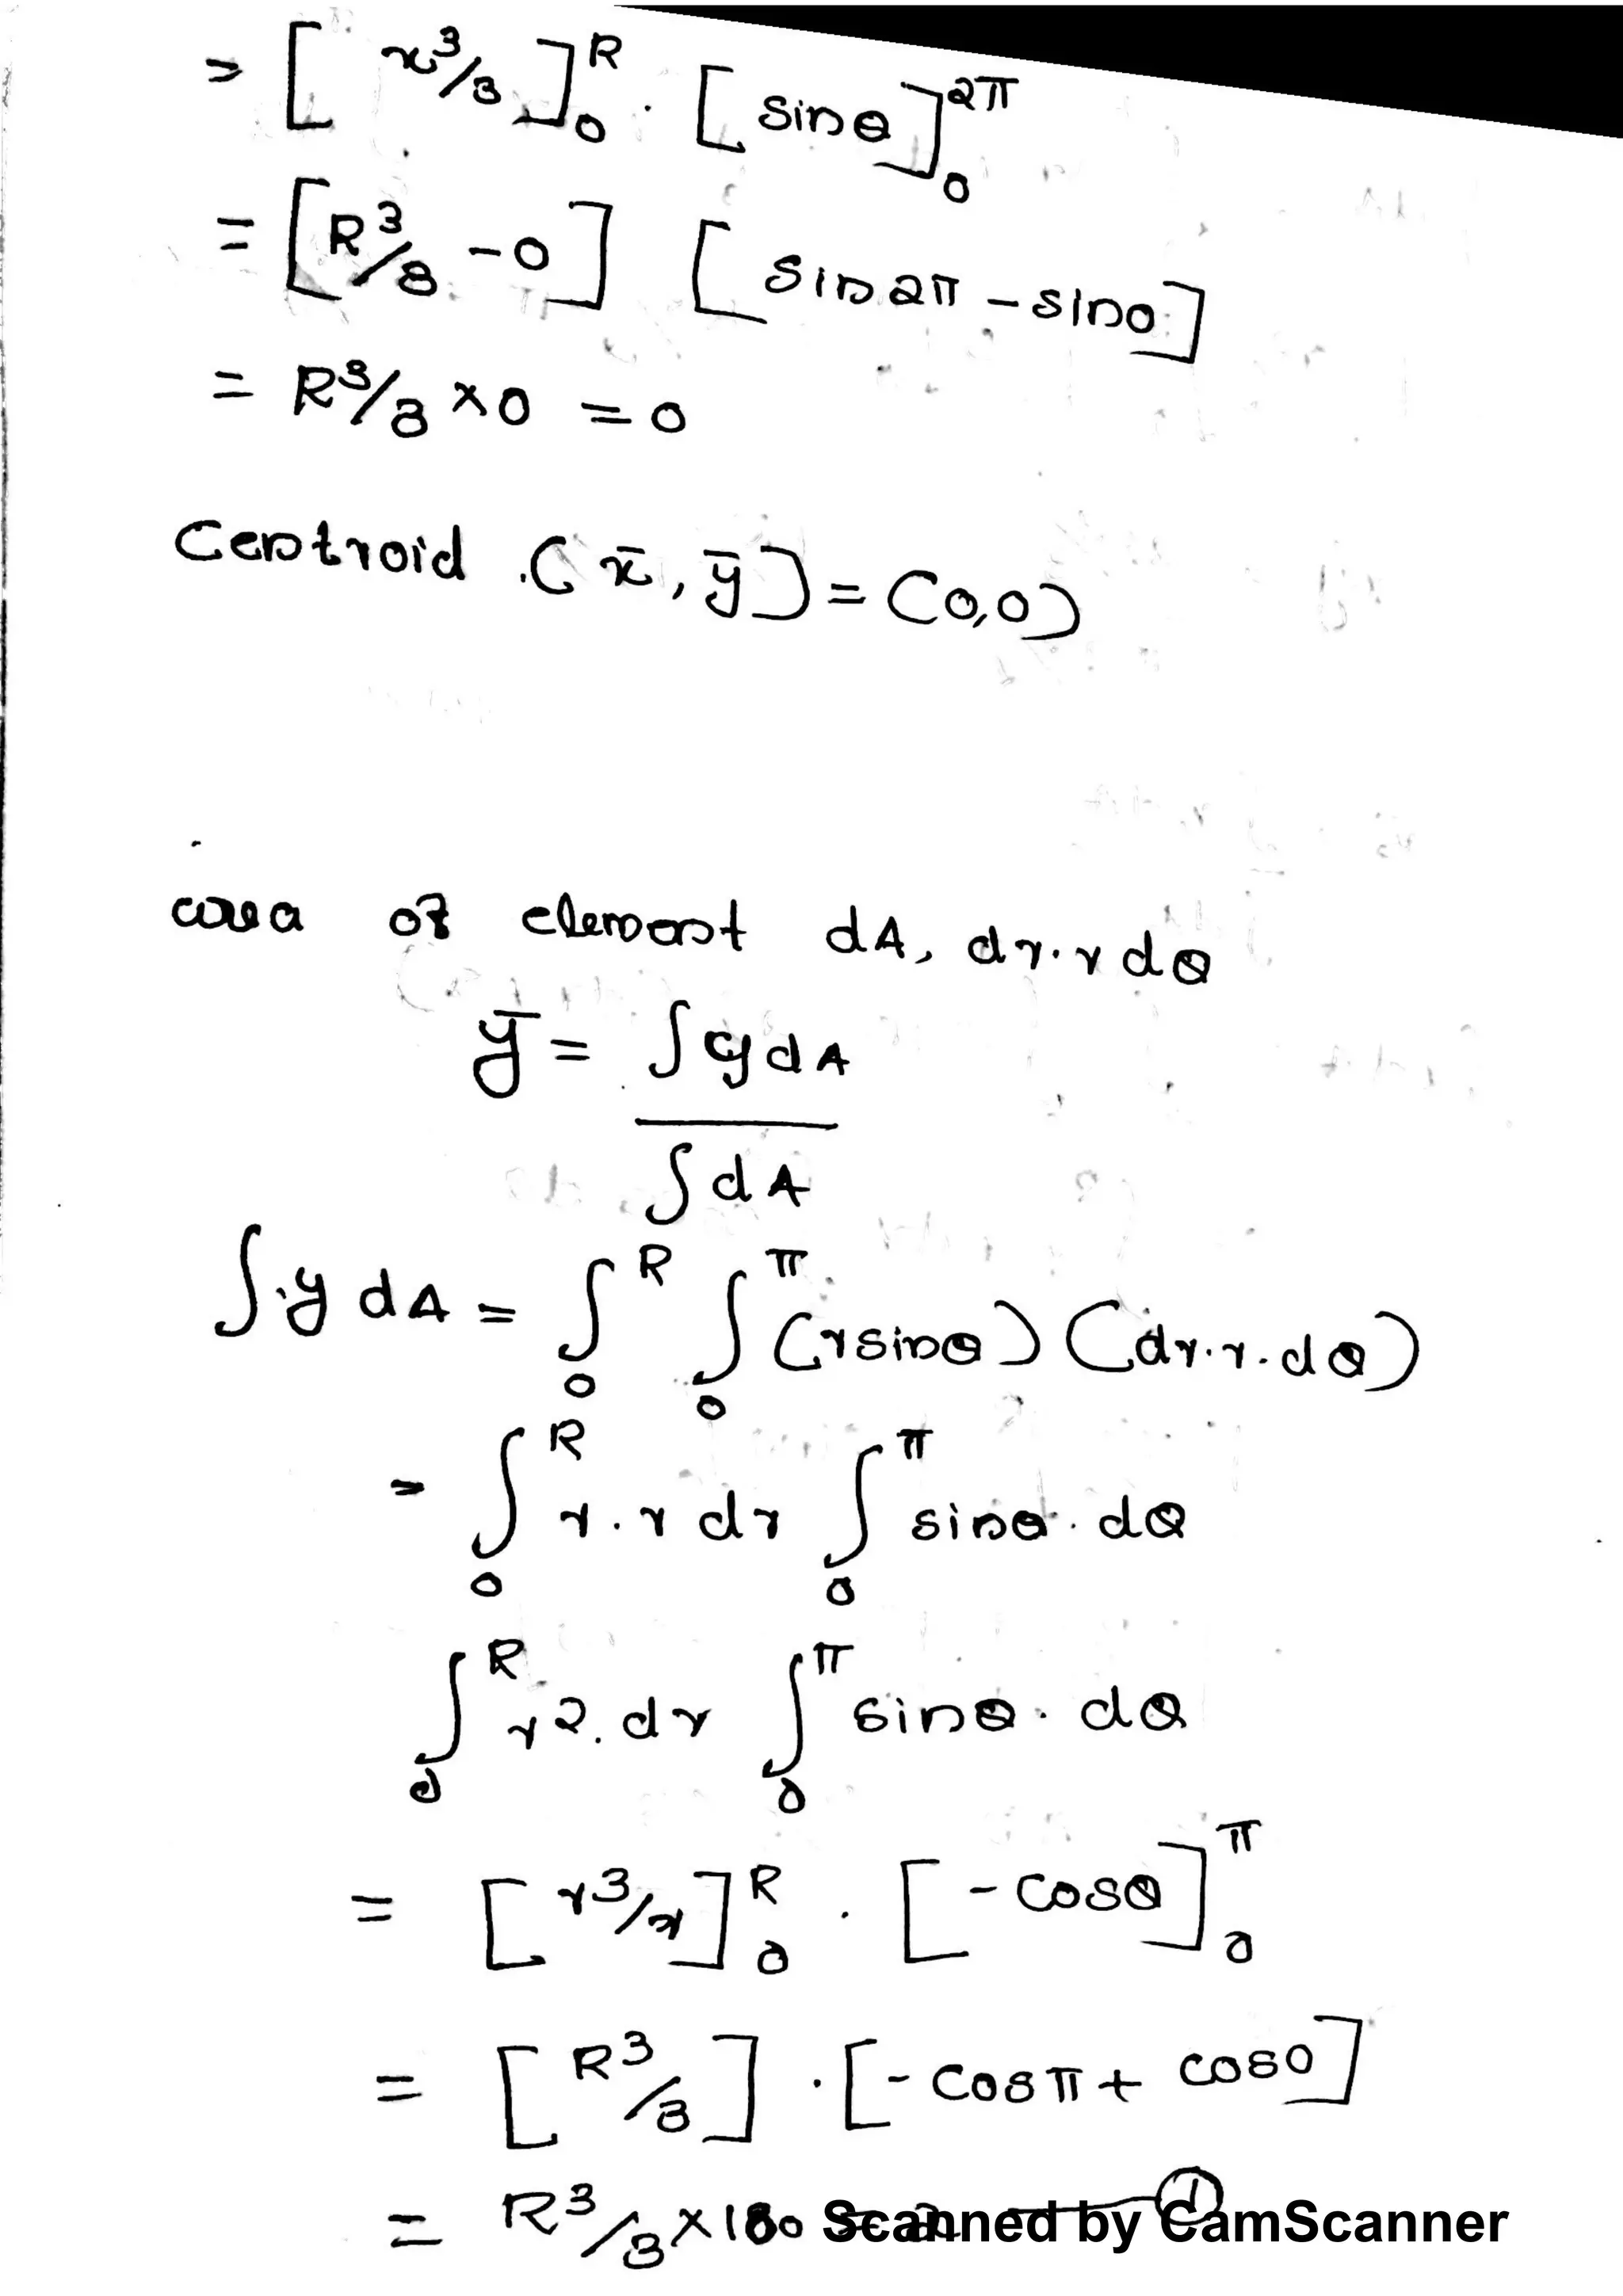 = [x³/3]₀ᴿ . [sinθ]₀^2π
= [R³/3 - 0] [sin2π - sin0]
= R³/3 × 0 = 0
Centroid (x̄, ȳ) = (0,0)
area of element dA, dr.r dθ
ȳ = ∫ y dA
∫ dA
∫ y dA = ∫₀ᴿ ∫₀^π (r sinθ) (dr.r.dθ)
= ∫₀ᴿ r.r dr ∫₀^π sinθ. dθ
∫₀ᴿ r2. dr ∫₀^π sinθ. dθ
= [r³/x]₀ᴿ . [-cosθ]₀^π
= [R³/3] . [-cosπ + cos0]
= R³/3 × 180 = 2 — ①
Scanned by CamScanner